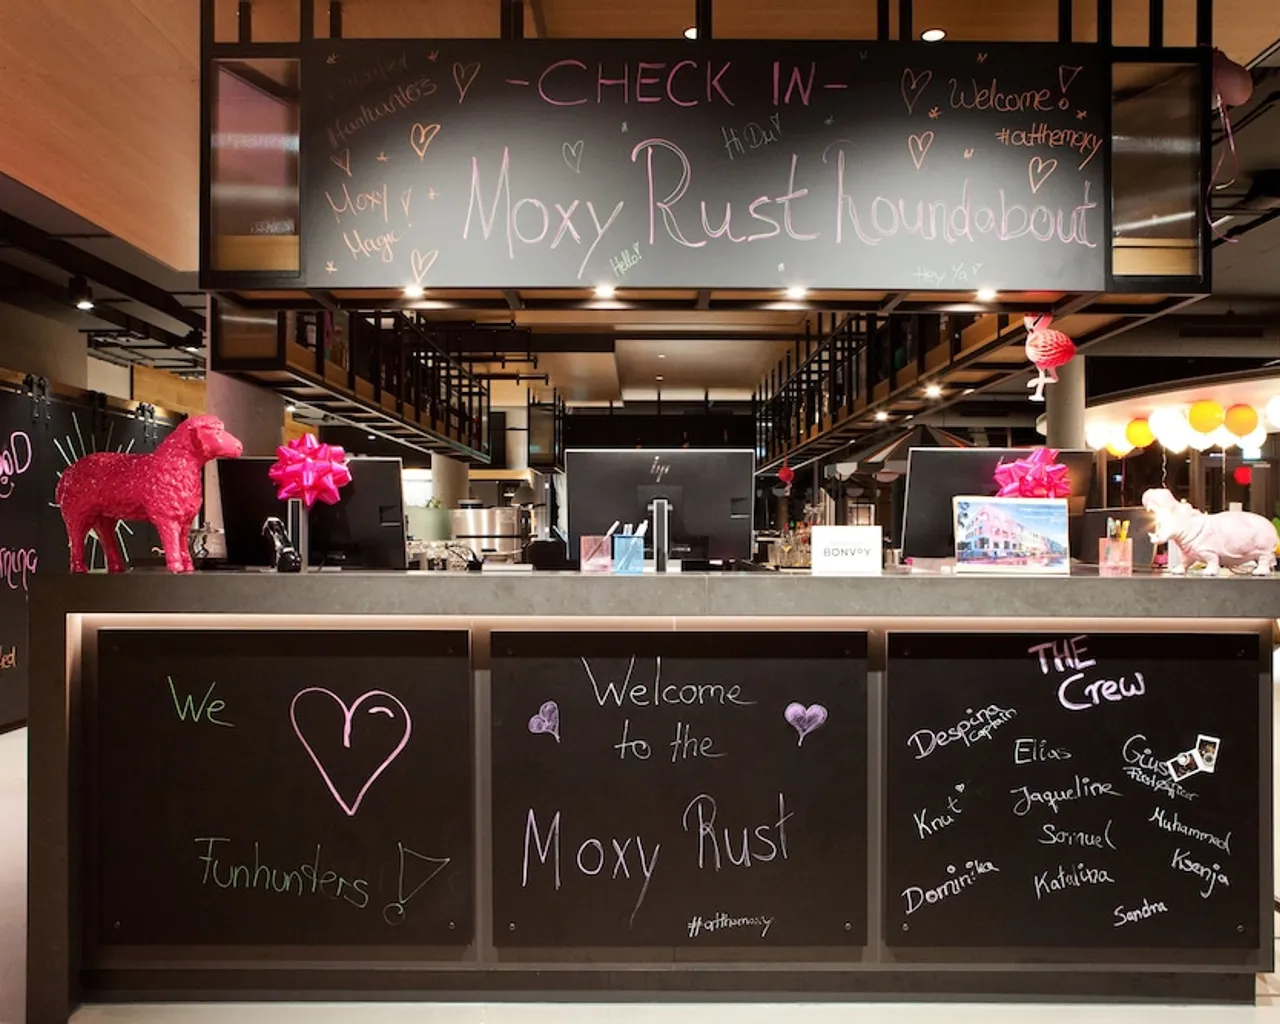 -CHECK IN-
#funhunters
Welcome!
#atthemoxy
Hi Du!
Moxy
Magic!
Moxy Rust houndabout
Hello!
Hey Ya!
hp
BONVOY
We
Funhunters!
Welcome
to the
Moxy Rust
#atthemoxy
THE
Crew
Despina
Captain
Elias
Gius
First Officer
Knut
Jaqueline
Samuel
Muhammed
Dominika
Katalina
Ksenja
Sandra